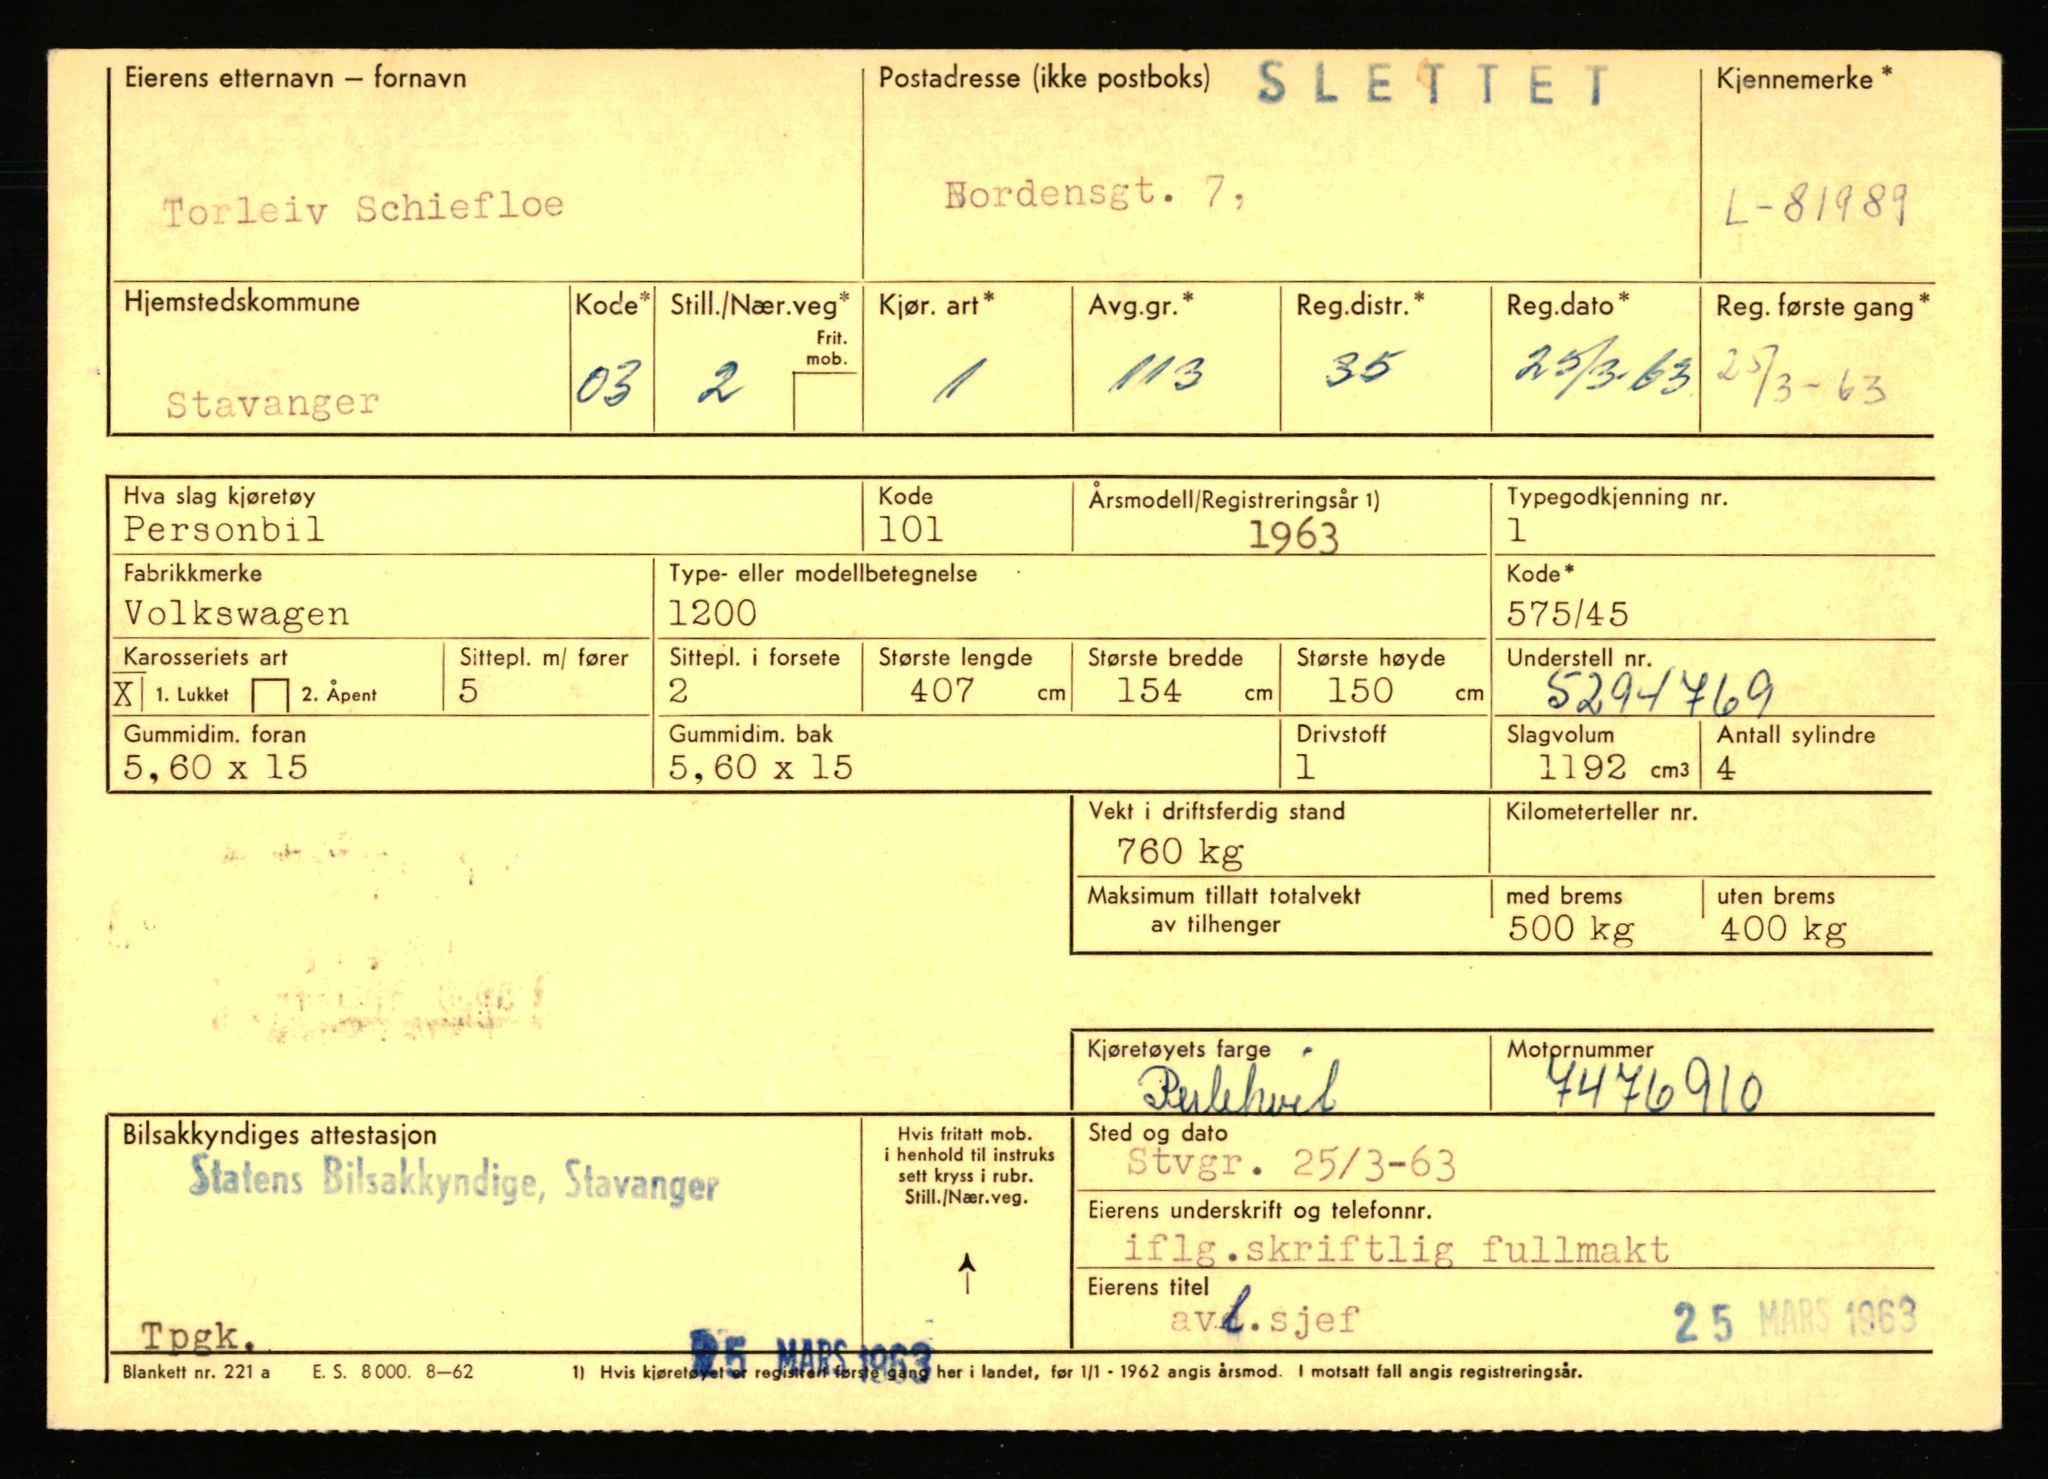 Eierens etternavn – fornavn
Postadresse (ikke postboks)
SLETTET
Kjennemerke*
Torleiv Schiefloe
Nordensgt. 7,
L-81989
Hjemstedskommune
Kode*
Still./Nær.veg*
Frit.
mob.
Kjør. art*
Avg.gr.*
Reg.distr.*
Reg.dato*
Reg. første gang*
Stavanger
03
2
1
113
35
25/3-63
25/3-63
Hva slag kjøretøy
Kode
Årsmodell/Registreringsår 1)
Typegodkjenning nr.
Personbil
101
1963
1
Fabrikkmerke
Type- eller modellbetegnelse
Kode*
Volkswagen
1200
575/45
Karosseriets art
Sittepl. m/ fører
Sittepl. i forsete
Største lengde
Største bredde
Største høyde
Understell nr.
X 1. Lukket
2. Åpent
5
2
407 cm
154 cm
150 cm
5294769
Gummidim. foran
Gummidim. bak
Drivstoff
Slagvolum
Antall sylindre
5,60 x 15
5,60 x 15
1
1192 cm3
4
Vekt i driftsferdig stand
Kilometerteller nr.
760 kg
Maksimum tillatt totalvekt
av tilhenger
med brems
uten brems
500 kg
400 kg
Kjøretøyets farge
Motornummer
Perlehvit
7476910
Bilsakkyndiges attestasjon
Statens Bilsakkyndige, Stavanger
Hvis fritatt mob.
i henhold til instruks
sett kryss i rubr.
Still./Nær.veg.
Sted og dato
Stvgr. 25/3-63
Eierens underskrift og telefonnr.
iflg.skriftlig fullmakt
Eierens titel
avd.sjef
25 MARS 1963
Tpgk.
25 MARS 1963
Blankett nr. 221 a
E. S. 8000. 8–62
1) Hvis kjøretøyet er registrert første gang her i landet, før 1/1 - 1962 angis årsmod. I motsatt fall angis registreringsår.